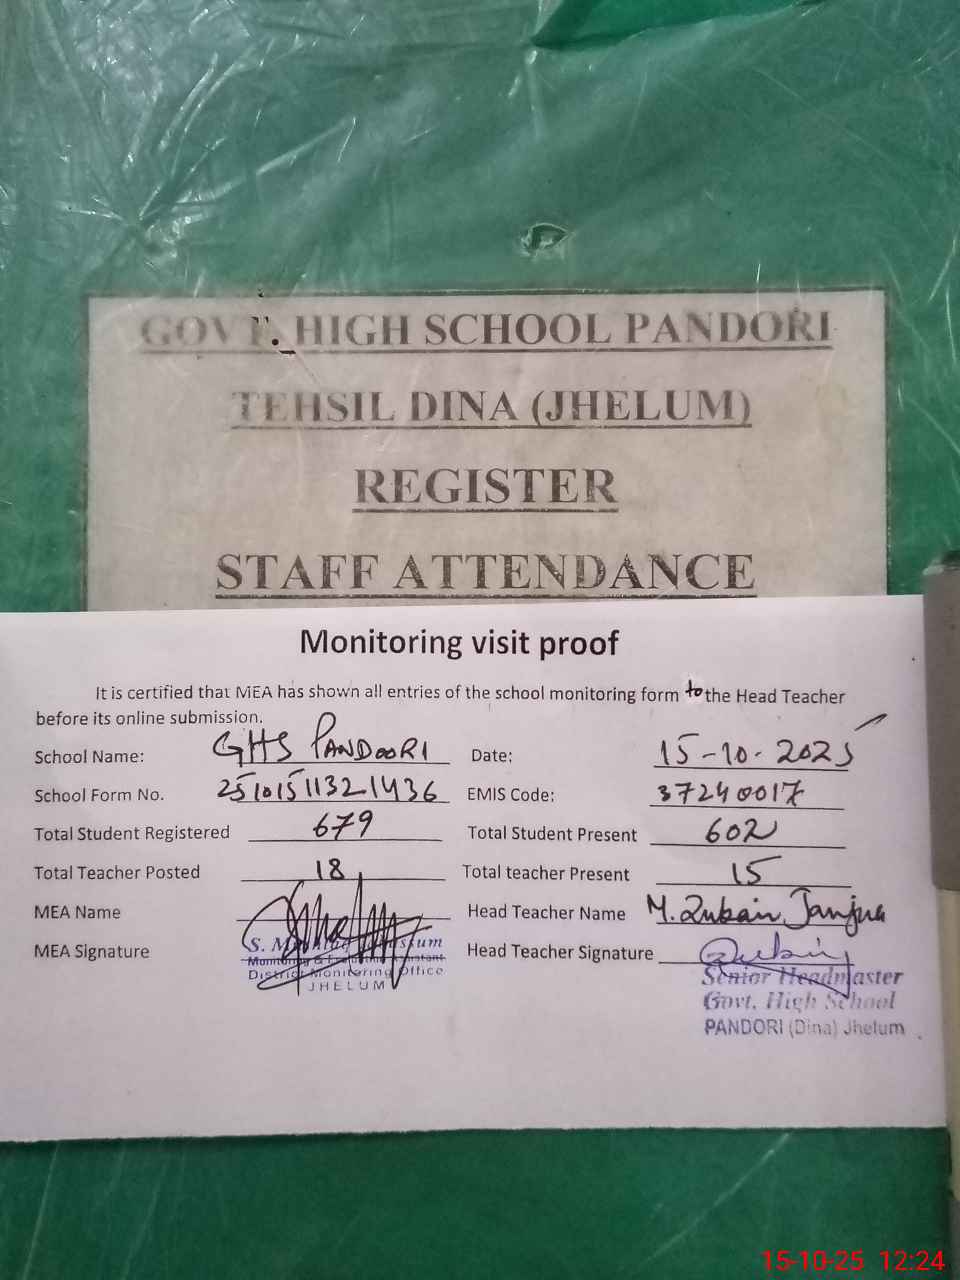 GOVT. HIGH SCHOOL PANDORI
TEHSIL DINA (JHELUM)
REGISTER
STAFF ATTENDANCE
Monitoring visit proof
It is certified that MEA has shown all entries of the school monitoring form to the Head Teacher
before its online submission.
School Name: GHS PANDORI Date: 15-10-2025
School Form No. 25101511321436 EMIS Code: 37240017
Total Student Registered 679 Total Student Present 602
Total Teacher Posted 18 Total teacher Present 15
MEA Name Head Teacher Name M. Zubair Janjua
MEA Signature Head Teacher Signature Zubair
S.
Monitoring & Evaluation Assistant
District Monitoring Office
JHELUM
Senior Headmaster
Govt. High School
PANDORI (Dina) Jhelum
15-10-25 12:24